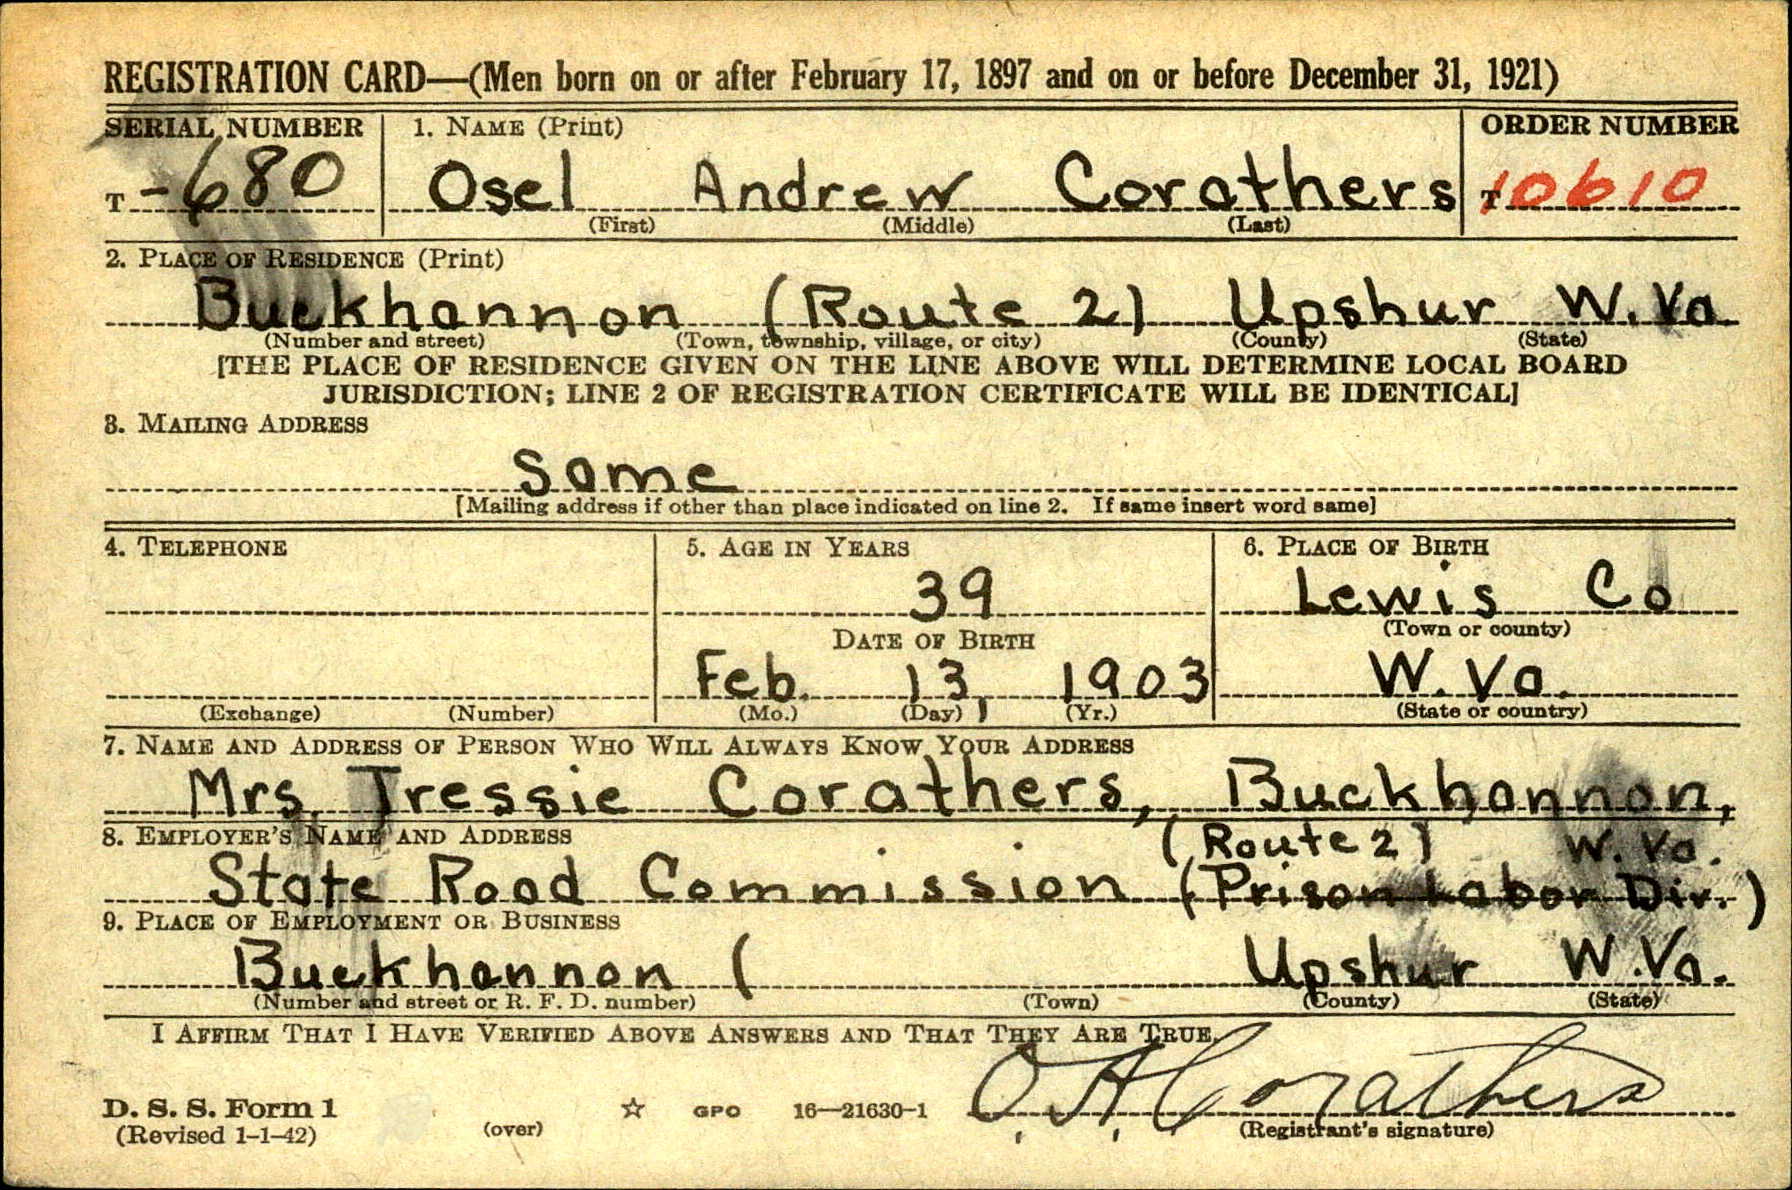 REGISTRATION CARD—(Men born on or after February 17, 1897 and on or before December 31, 1921)
SERIAL NUMBER 1. NAME (Print) ORDER NUMBER
T -680 Osel Andrew Corathers T 10610
(First) (Middle) (Last)
2. PLACE OF RESIDENCE (Print)
Buckhannon (Route 2) Upshur W. Va.
(Number and street) (Town, township, village, or city) (County) (State)
[THE PLACE OF RESIDENCE GIVEN ON THE LINE ABOVE WILL DETERMINE LOCAL BOARD
JURISDICTION; LINE 2 OF REGISTRATION CERTIFICATE WILL BE IDENTICAL]
3. MAILING ADDRESS
Same
[Mailing address if other than place indicated on line 2. If same insert word same]
4. TELEPHONE 5. AGE IN YEARS 6. PLACE OF BIRTH
39 Lewis Co
DATE OF BIRTH (Town or county)
Feb. 13, 1903 W. Va.
(Exchange) (Number) (Mo.) (Day) (Yr.) (State or country)
7. NAME AND ADDRESS OF PERSON WHO WILL ALWAYS KNOW YOUR ADDRESS
Mrs. Tressie Corathers, Buckhannon,
8. EMPLOYER'S NAME AND ADDRESS (Route 2) W. Va.
State Road Commission (Prison Labor Div.)
9. PLACE OF EMPLOYMENT OR BUSINESS
Buckhannon ( Upshur W. Va.
(Number and street or R. F. D. number) (Town) (County) (State)
I AFFIRM THAT I HAVE VERIFIED ABOVE ANSWERS AND THAT THEY ARE TRUE.
O. A. Corathers
D. S. S. Form 1 ☆ GPO 16—21630-1
(Revised 1-1-42) (over) (Registrant's signature)